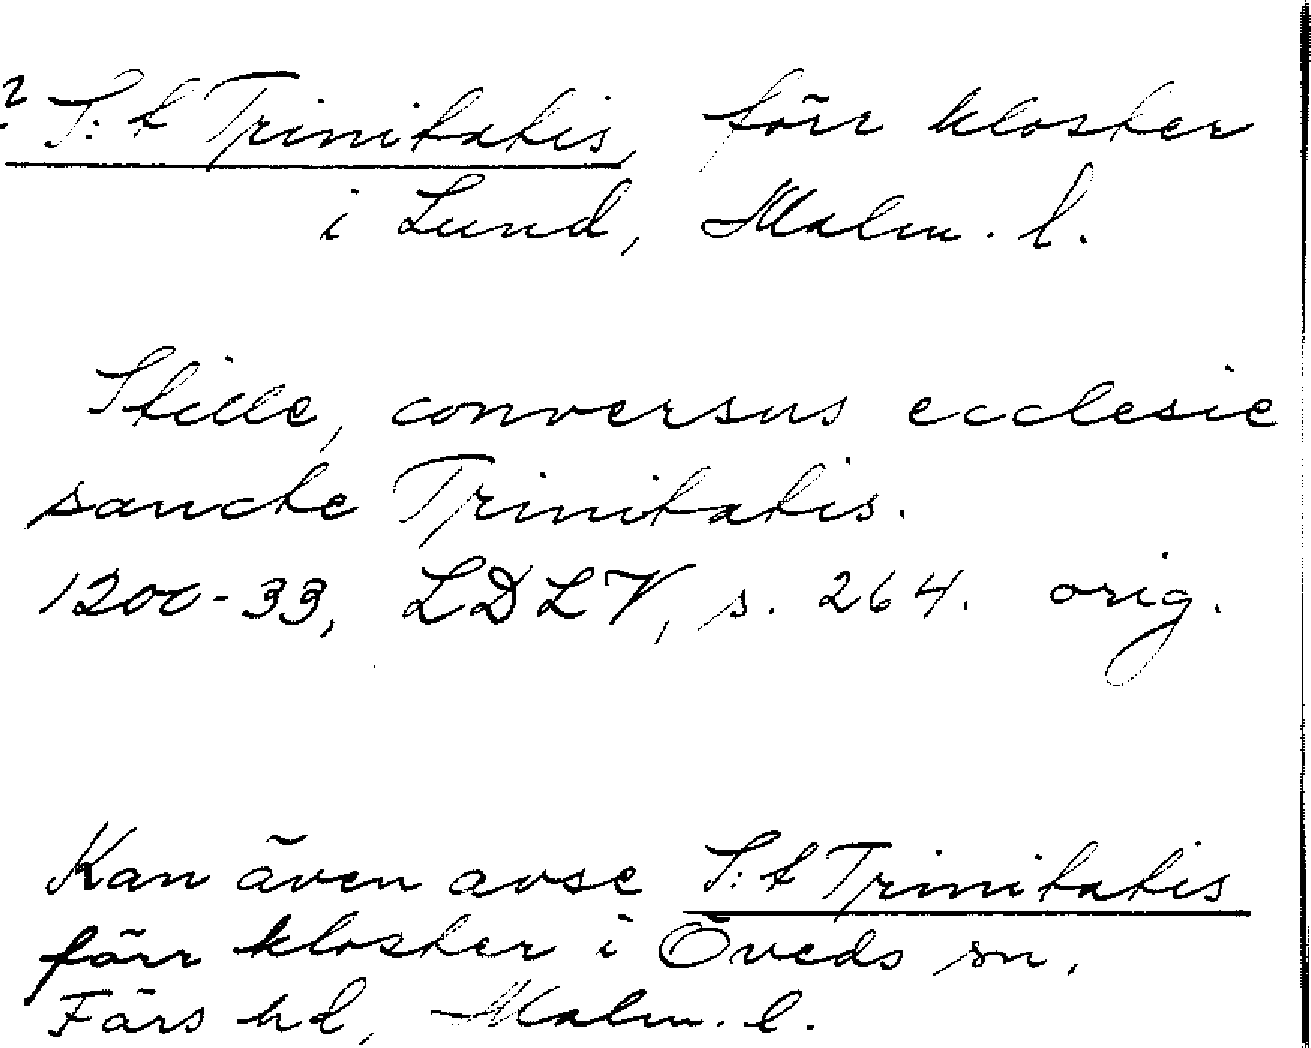 ? S:t Trinitatis, förr kloster
i Lund, Malm. l.
Stille, conversus ecclesie
sancte Trinitatis.
1200-33, LDLV, s. 264. orig.
Kan även avse S:t Trinitatis
förr kloster i Öveds sn,
Färs hd, Malm. l.